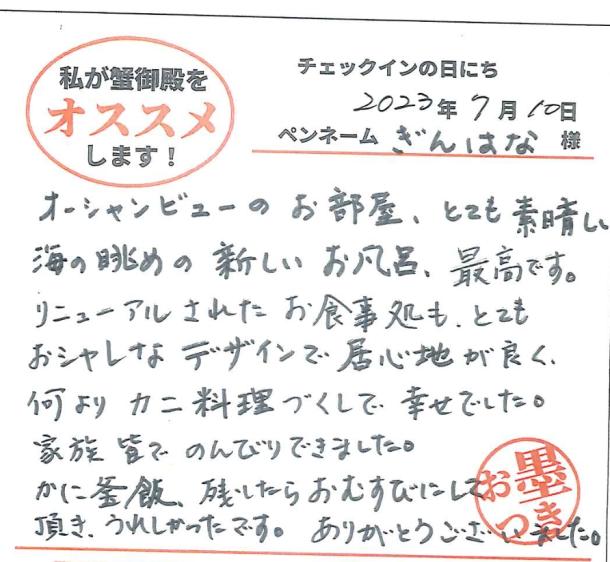 私が蟹御殿を
オススメ
します！
チェックインの日にち
2023年7月10日
ペンネーム ぎんはな 様
オーシャンビューの お部屋、とても 素晴しい
海の眺めの 新しい お風呂、最高です。
リニューアル された お食事処も、とても
おシャレな デザインで 居心地が良く、
何より カニ料理づくしで 幸せでした。
家族 皆で のんびりできました。
かに釜飯、残したら おむすびにして
頂き、うれしかったです。 ありがとうございました。
お墨つき